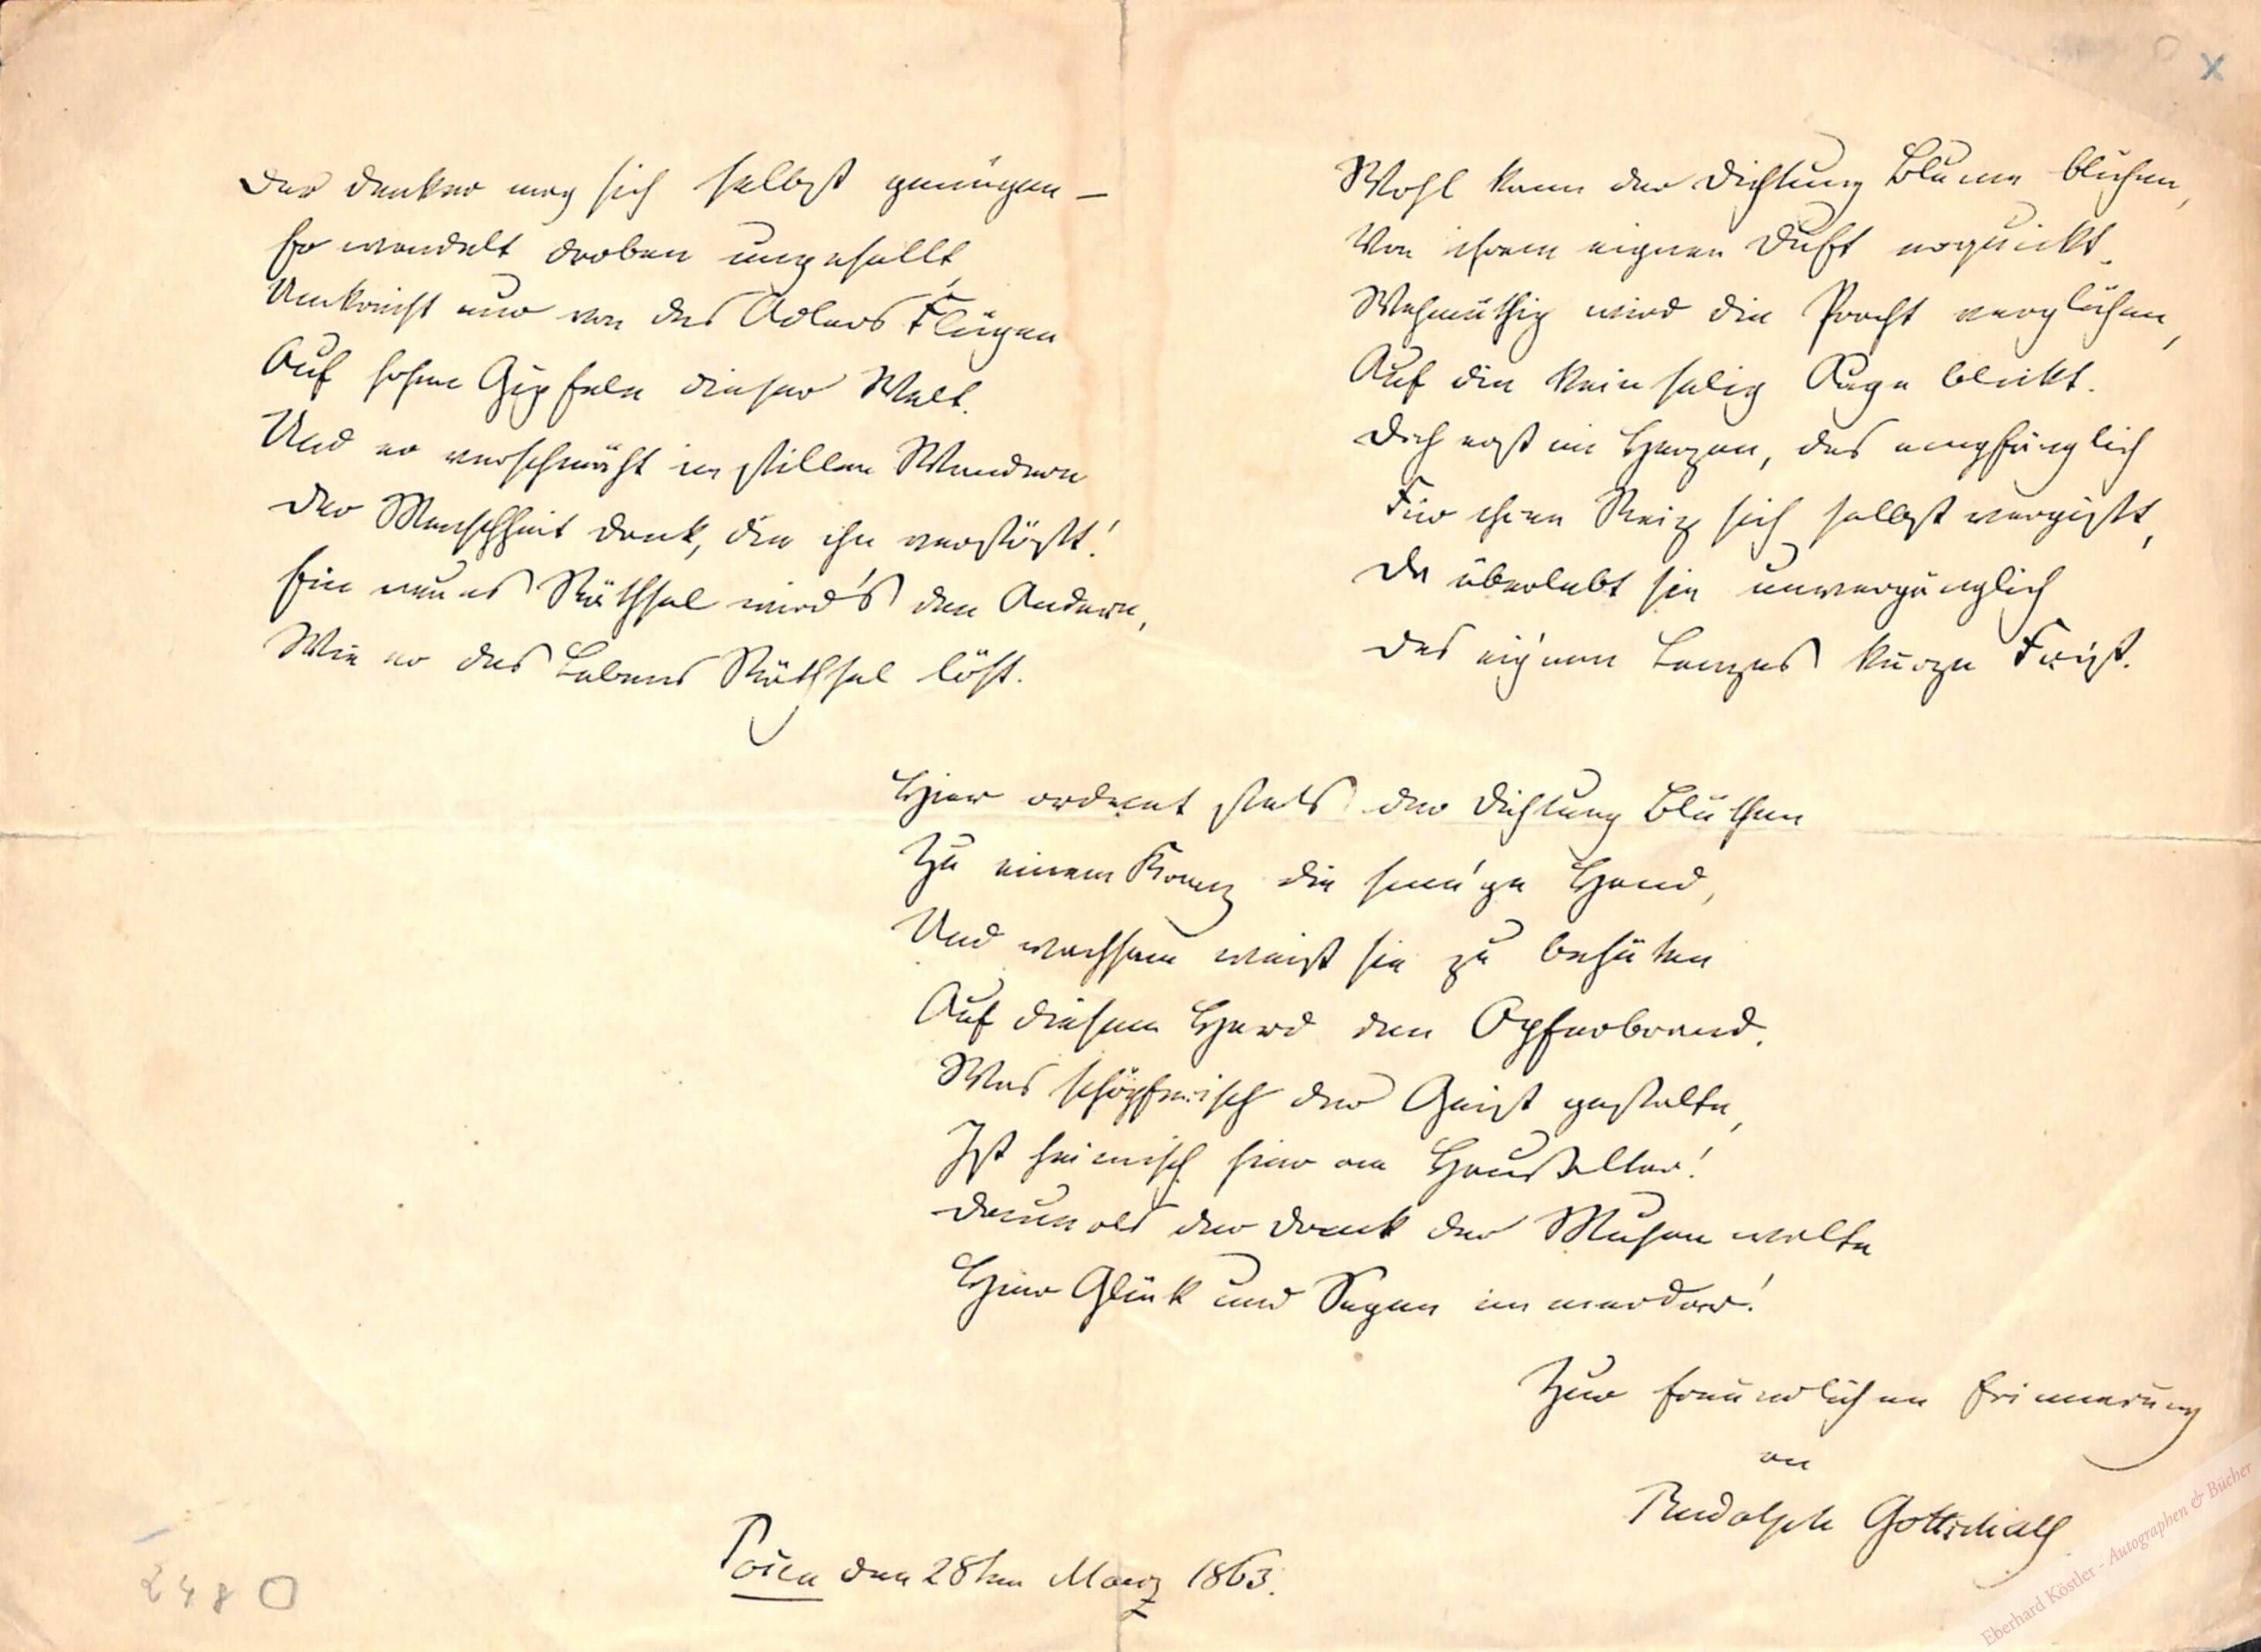 Der Denker mag sich selbst genügen –
Er wandelt droben ungesellt,
Umkreist nur von des Adlers Flügen
Auf hohen Gipfeln dieser Welt.
Und er verschmäht in stillem Wandern
Der Menschheit Dank, die ihn verstößt!
Ein neues Räthsel wird's den Andern,
Wie er des Lebens Räthsel löst.
Wohl kann der Dichtung Blume blühen,
Von ihrem eignen Duft erquickt.
Wehmüthig wird die Pracht verglühen,
Auf die kein selig Auge blickt.
Doch erst im Herzen, das empfänglich
Für ihren Reiz sich selbst vergißt,
Da überlebt sie unvergänglich
Des eig'nen Lenzes kurze Frist.
Hier ordnet stets der Dichtung Blüthen
Zu einem Kranz die sinn'ge Hand,
Und wachsam weiß sie zu behüten
Auf diesem Herd den Opferbrand.
Was schöpferisch der Geist gestalte,
Ist heimisch hier am Hausaltar!
Drum als der Dank der Musen walte
Hier Glück und Segen immerdar!
Zur freundlichen Erinnerung
an
Rudolph Gottschall
Posen den 28ten März 1863.
2480
X
Eberhard Köstler - Autographen & Bücher